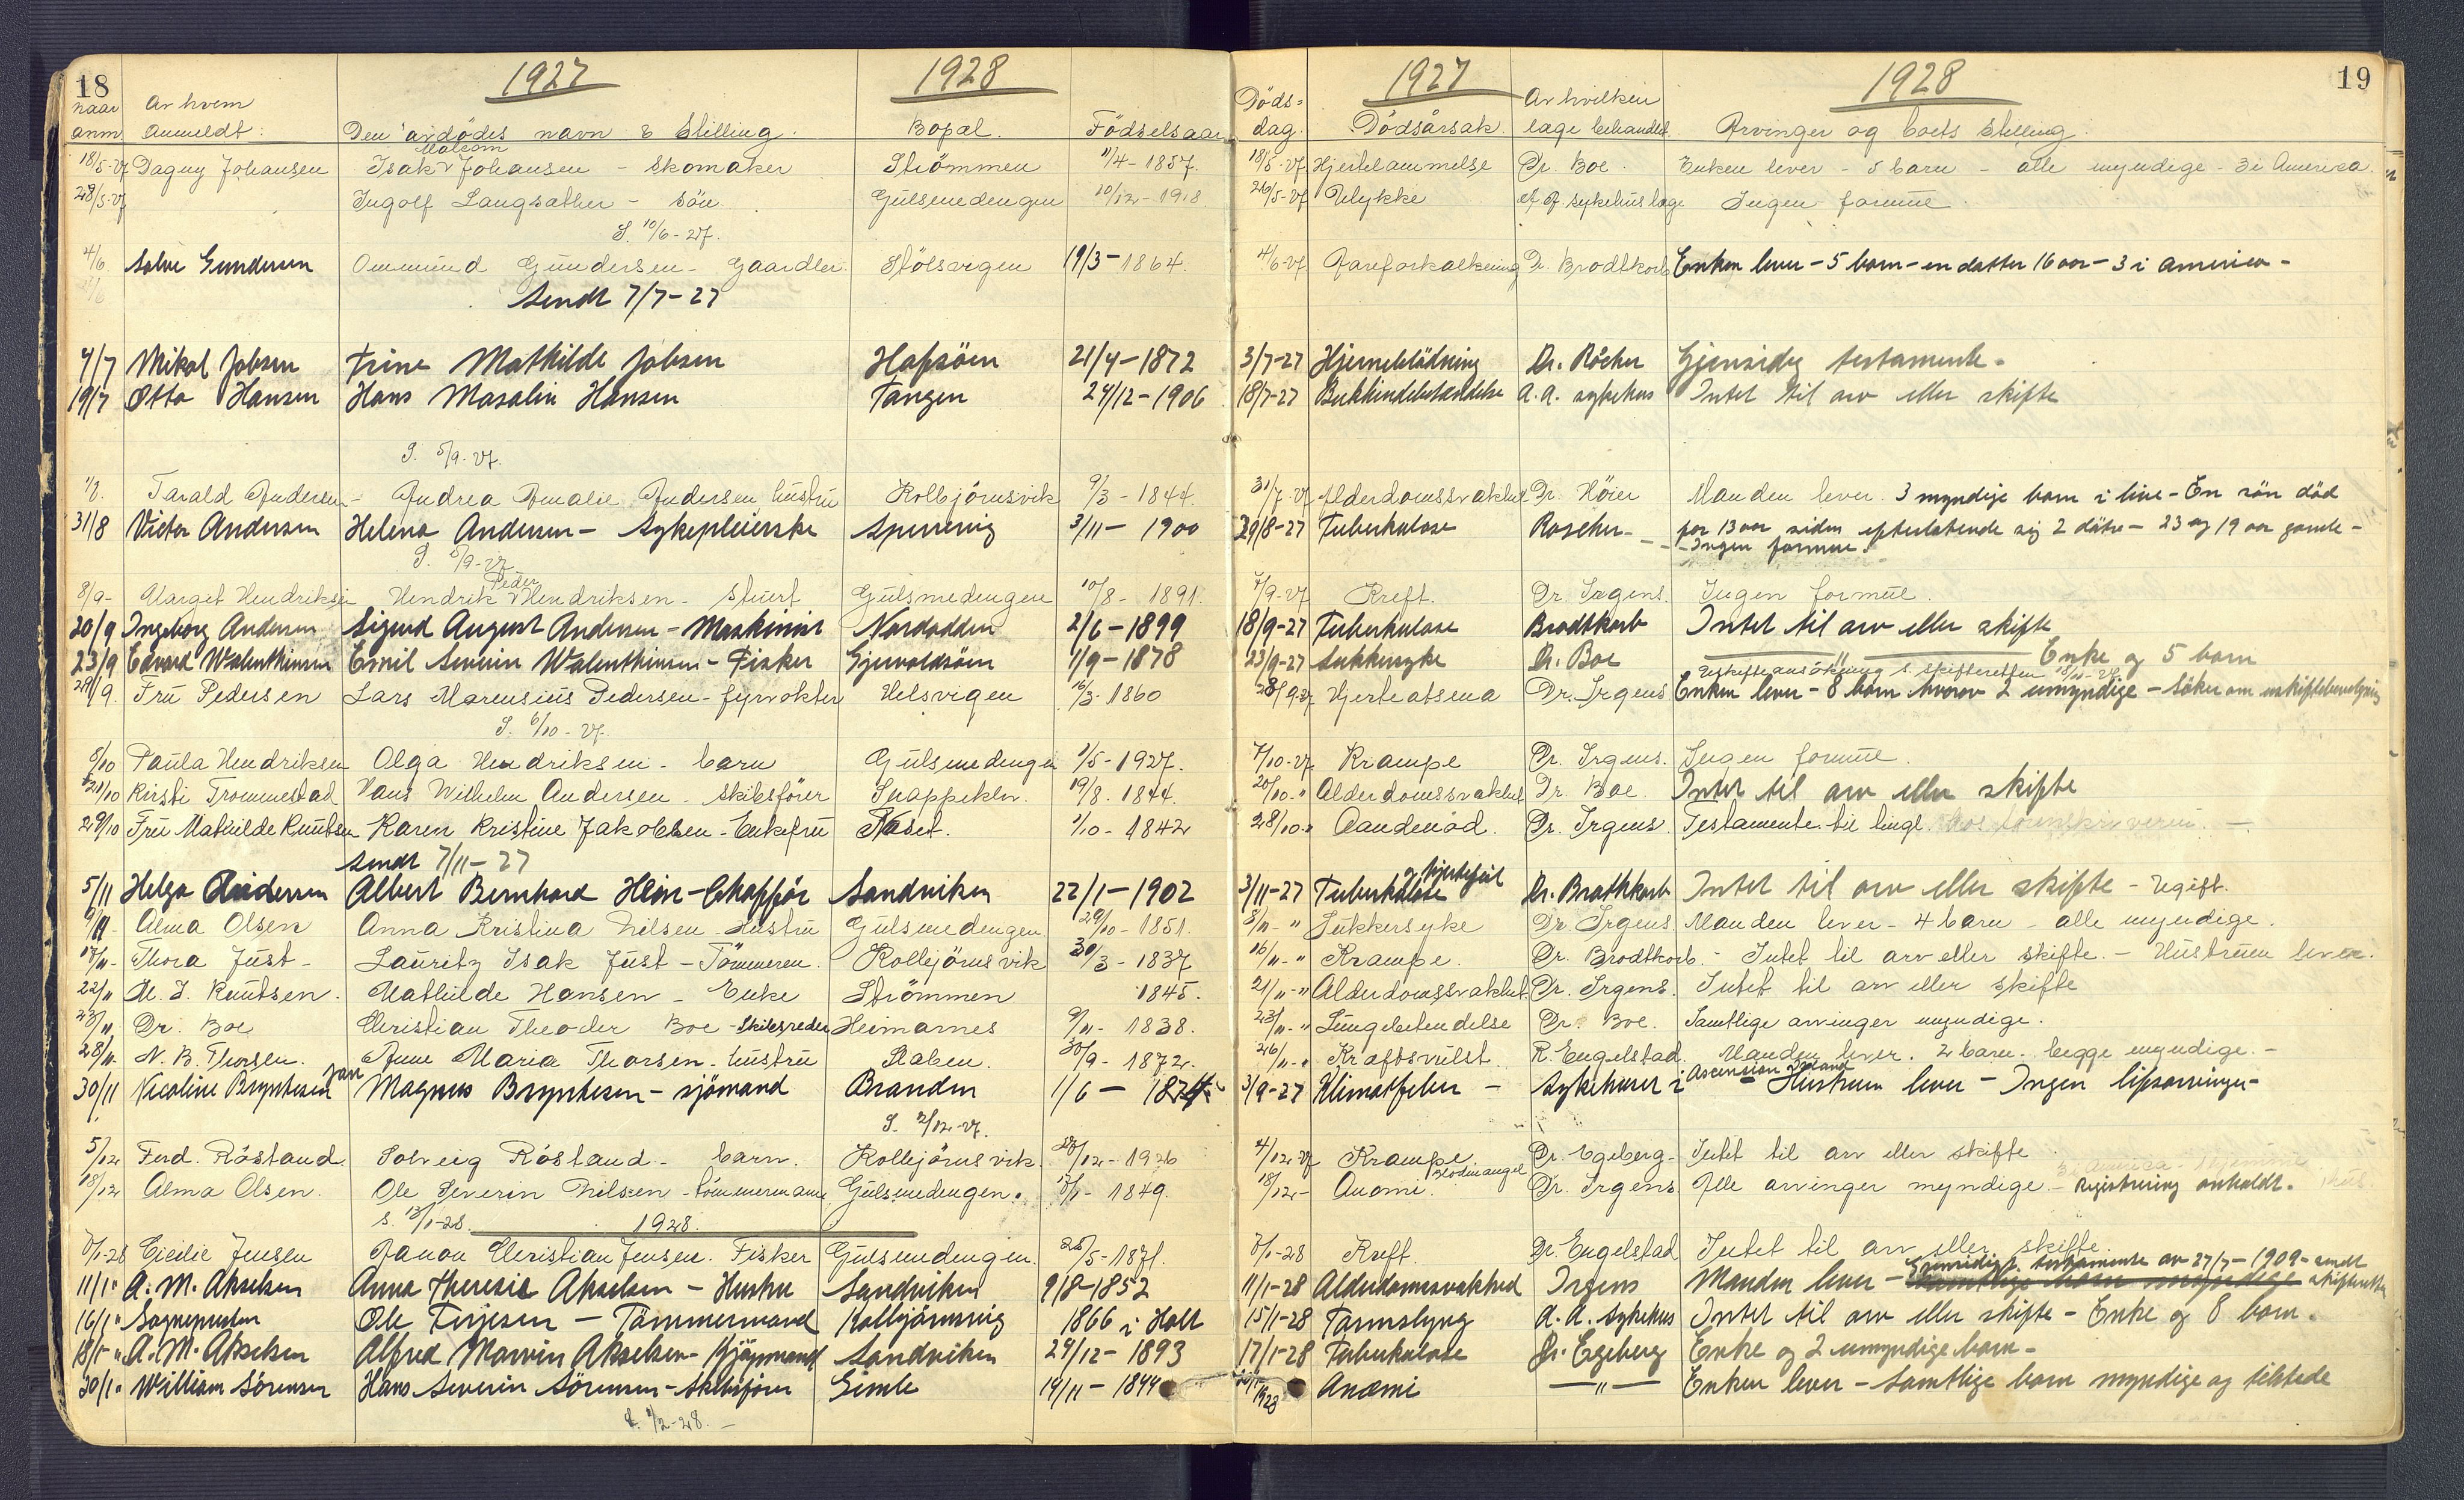 18 1927 1928 1927 1928 19
naar anm. Av hvem anmeldt: Den avdødes navn & Stilling. Bopæl. Fødselsaar Döds-dag. Dödsårsak. Av hvilken læge behandlet Arvinger og boets stilling.
18/5-27 Dagny Johansen Isak Malcom Johansen - Skomaker Strömmen 11/4-1857. 18/5-27 Hjertelammelse Dr. Boe. Enken lever - 5 barn - alle myndige - 3 i America.
28/5-27 Ingolf Langsæther - Sön. Gülsmedengen 20/12-1918. 26/5-27 Ulykke sykehuslæge Ingen formue
S. 10/6-27.
4/6 Salve Gundersen Ommund Gundersen - Gaardbr. Stölsvigen 19/3-1864. 4/6-27 Aareforkalkning Dr. Brodtkorb Enken lever - 5 barn - en datter 16 aar - 3 i America -
Sendt 7/7-27
4/7 Mikal Jobsen Trine Mathilde Jobsen Hafsöen 21/4-1872 3/7-27 Hjerneblödning Dr. Röcher Gjensidig testamente -
19/7 Otto Hansen Hans Masalin Hansen Tangen 24/12-1906 18/7-27 Bukhindebetændelse A.A. sykehus Intet til arv eller skifte
S. 5/9-27.
1/8. Tarald Andersen - Andrea Amalie Andersen hustru Kolbjörnsvik 9/3-1844. 31/7-27 Alderdomssvakhet Dr. Höier Manden lever. 3 myndige barn i live - En sön död
31/8 Victor Andersen Helena Andersen - Sykepleierske Spærevig 3/11-1900 29/8-27 Tuberkulose Roscher - for 13 aar siden efterlatende sig 2 dötre - 23 og 19 aar gamle -
S. 5/9-27 - Ingen formue.
8/9- Marget Hendriksen Hendrik Peder Hendriksen - Stuert Gülsmedengen 10/8-1891. 7/9-27 Kreft. Dr. Irgens. Ingen formue.
20/9 Ingeborg Andersen Sigurd August Andersen - Maskinist Nordodden 2/6-1899 18/9-27 Tuberkulose Brodtkorb Intet til arv eller skifte
23/9 Edvard Walenthinsen Emil Severin Walenthinsen - Fisker Gjervoldsöen 1/9-1878 23/9-27 Sukkersyke Dr. Boe — " — Enke og 5 barn
Uskifteansökning s. skifteretten
29/9. Frü Pedersen Lars Marensius Pedersen - fyrvokter Helsvigen 16/3-1860 28/9-27 Hjerteatsena Dr. Irgens Enken lever - 8 barn hvorav 2 umyndige - söker om uskiftebevilgning
S. 6/10-27.
8/10 Paula Hendriksen Olga Hendriksen - barn Gülsmedengen 1/5-1927. 7/10-27 Krampe Dr. Irgens. Ingen formue.
21/10 Kirsti Trommestad Hans Wilhelm Andersen - Skibsförer Snappekln. 19/8-1844. 20/10-" Alderdomssvakhet Dr. Boe. Intet til arv eller skifte
29/10 Frü Mathilde Knutsen Karen Kristine Jakobsen - Enkefrü Næset. 1/10-1842 28/10-" Aandenöd. Dr. Irgens. Testamente til tingl.
Sendt 7/11-27
5/11 Helga Andersen Albert Bernhard Hein - Chafför Sandviken 22/1-1902 3/11-27 Tuberkulose og hjertefeil Dr. Brothkorb Intet til arv eller skifte - Ugift.
9/11- Alma Olsen Anna Kristina Nilsen - Hustru Gülsmedengen 29/10-1851. 8/11-" Sukkersyke Dr. Irgens Manden lever - 4 barn - alle myndige.
17/11- Thora Just - Lauritz Isak Just - Tömmerm. Kolbjörnsvik 30/3-1837 16/11-" Krampe. Dr. Brodtkorb. - Intet til arv eller skifte. - Hustruen lever.
22/11 M. J. Knutsen. Mathilde Hansen - Enke Strömmen 1845. 21/11-" Alderdomssvakhet Dr. Irgens. Intet til arv eller skifte
23/11. Dr. Boe Christian Theodor Boe - Skibsreder Heimarnes 9/11-1838. 23/11-" Lungebetendelse Dr. Boe. Samtlige arvinger myndige.
28/11. N. B. Thorsen. Anne Maria Thorsen - hustru Raben. 30/9-1872. 26/11-" Kraftsvulst R. Engelstad. Manden lever. 2 barn. begge myndige. -
30/11 Nicoline Bryntesen Jan Magnus Bryntesen - sjömand Branden 1/6-1874 3/9-27 Klimatfeber - Sykehuset i Ascension Island - Hustruen lever - Ingen lifsarvinger -
S. 2/12-27.
5/12 Ferd. Röstand. Solveig Röstand - barn. Kolbjörnsvik 28/12-1926 4/12-27 Krampe Dr. Egeberg - Intet til arv eller skifte
18/12 Alma Olsen. Ole Severin Nilsen - tömmermann Gülsmedengen. 17/1-1849. 18/12- Anomi. Blodmangel Dr. Irgens Alle arvinger myndige - Registrering anholdt.
S. 13/1-28. 1928.
7/1-28 Cicilie Jensen Aanon Christian Jensen. Fisker Gülsmedengen. 25/5-1871. 7/1-28 Kreft. Dr. Engelstad Intet til arv eller skifte
11/1" A. M. Akselsen Anna Theresie Akselsen - Hustru Sandviken 9/8-1852 11/1-28 Alderdomssvakhed Irgens Manden lever - Gjensidigt testamente av 27/7-1909 - sendt skifteretten
16/1" Sognepresten Ole Terjesen - Tömmermand Kolbjörnsvig 1866 i Holt 15/1-28 Tarmslyng A.A. Sykehus Intet til arv eller skifte - Enke og 8 barn.
18/1-" A. M. Akselsen Alfred Marvin Akselsen - Kjöpmand Sandviken 24/12-1893 17/1-28 Tuberkulose Dr. Egeberg Enke og 2 umyndige barn -
30/1" William Sörensen Hans Severin Sörensen - Skibsförer Gimle 14/11-1844 1928 Anæmi — " — Enken lever - Samtlige barn myndige og tilstede
S. 2/2-28. -